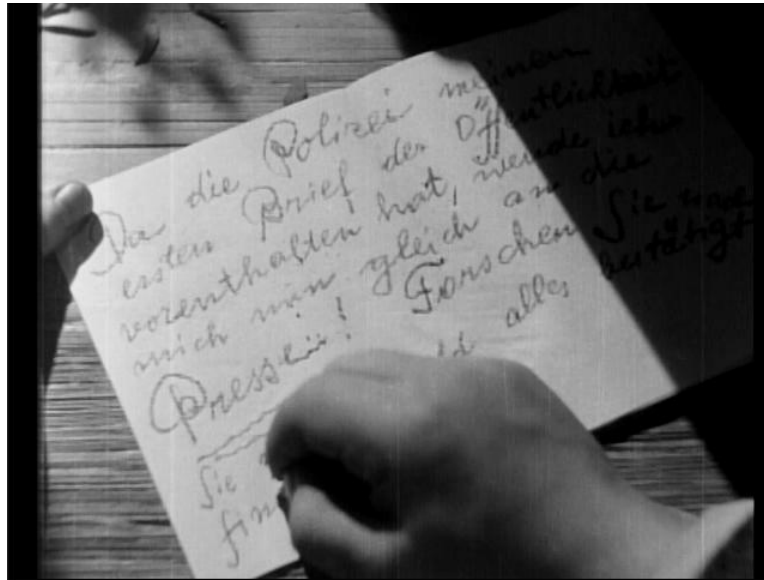 Da die Polizei meinen
ersten Brief der Öffentlichkeit
vorenthalten hat, wende ich
mich nun gleich an die
Presse!! Forschen Sie nach
Sie alles bestätigt